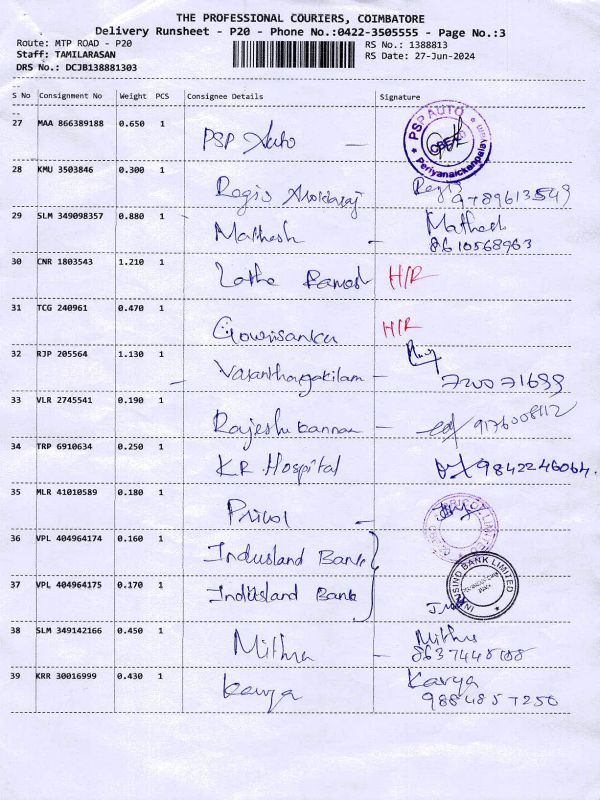 THE PROFESSIONAL COURIERS, COIMBATORE
Delivery Runsheet - P20 - Phone No.:0422-3505555 - Page No.:3
Route: MTP ROAD - P20
Staff: TAMILARASAN
DRS No.: DCJB138881303
RS No.: 1388813
RS Date: 27-Jun-2024
S No Consignment No Weight PCS Consignee Details Signature
27 MAA 866389188 0.650 1 PSP Auto
PSP AUTO
Periyanaickenpalayam
28 KMU 3503846 0.300 1 Regis
Regis 9789613549
29 SLM 349098357 0.880 1 Mathesh - Mathesh
8610568963
30 CNR 1803543 1.210 1 Lotha Ramesh H/R
31 TCG 240961 0.470 1 Gowrisankar H/R
32 RJP 205564 1.130 1
33 VLR 2745541 0.190 1 Rajeshkannan - 9176008112
34 TRP 6910634 0.250 1 KR Hospital 9842246064.
35 MLR 41010589 0.180 1 Pricol -
36 VPL 404964174 0.160 1 Indusland Bank
37 VPL 404964175 0.170 1 Indusland Bank
INDUSIND BANK LIMITED
38 SLM 349142166 0.450 1 Mithra - Mithra
39 KRR 30016999 0.430 1 Kavya - Kavya
9884857250